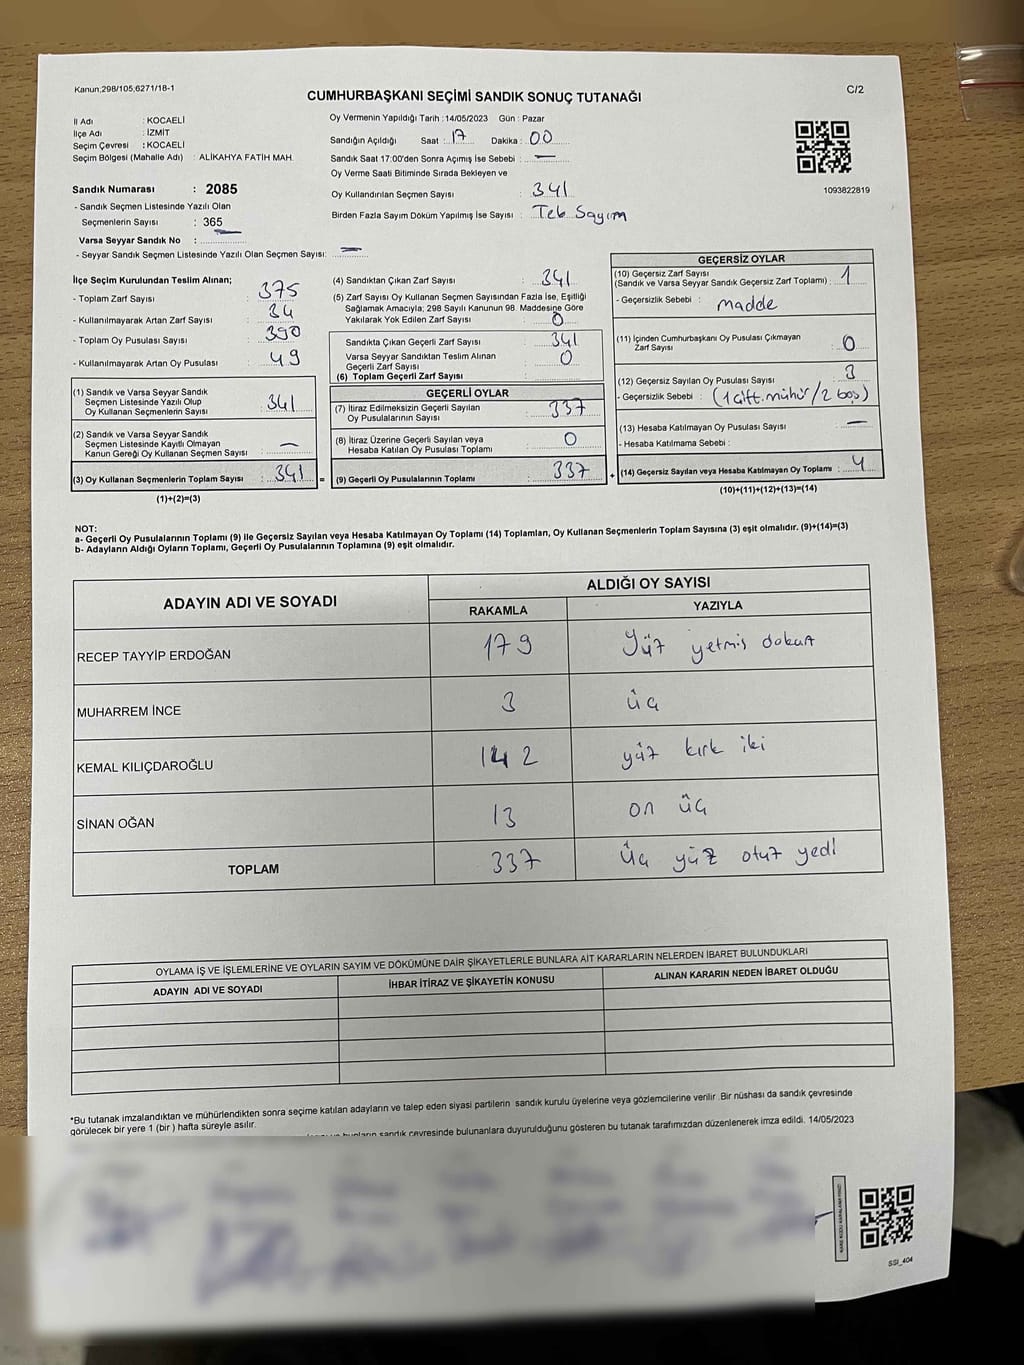 Kanun,298/105,6271/18-1
CUMHURBAŞKANI SEÇİMİ SANDIK SONUÇ TUTANAĞI
C/2
İl Adı : KOCAELİ
İlçe Adı : İZMİT
Seçim Çevresi : KOCAELİ
Seçim Bölgesi (Mahalle Adı) : ALİKAHYA FATİH MAH.
Sandık Numarası : 2085
- Sandık Seçmen Listesinde Yazılı Olan
Seçmenlerin Sayısı : 365
Varsa Seyyar Sandık No :
- Seyyar Sandık Seçmen Listesinde Yazılı Olan Seçmen Sayısı: —
Oy Vermenin Yapıldığı Tarih : 14/05/2023 Gün : Pazar
Sandığın Açıldığı Saat : 17 Dakika : 00
Sandık Saat 17:00'den Sonra Açımış İse Sebebi : —
Oy Verme Saati Bitiminde Sırada Bekleyen ve
Oy Kullandırılan Seçmen Sayısı : 341
Birden Fazla Sayım Döküm Yapılmış İse Sayısı : Tek Sayım
1093822819
İlçe Seçim Kurulundan Teslim Alınan;
- Toplam Zarf Sayısı : 375
- Kullanılmayarak Artan Zarf Sayısı : 34
- Toplam Oy Pusulası Sayısı : 390
- Kullanılmayarak Artan Oy Pusulası : 49
(1) Sandık ve Varsa Seyyar Sandık
Seçmen Listesinde Yazılı Olup
Oy Kullanan Seçmenlerin Sayısı : 341
(2) Sandık ve Varsa Seyyar Sandık
Seçmen Listesinde Kayıtlı Olmayan
Kanun Gereği Oy Kullanan Seçmen Sayısı : —
(3) Oy Kullanan Seçmenlerin Toplam Sayısı : 341 =
(1)+(2)=(3)
(4) Sandıktan Çıkan Zarf Sayısı : 341
(5) Zarf Sayısı Oy Kullanan Seçmen Sayısından Fazla İse, Eşitliği
Sağlamak Amacıyla; 298 Sayılı Kanunun 98. Maddesine Göre
Yakılarak Yok Edilen Zarf Sayısı : 0
Sandıkta Çıkan Geçerli Zarf Sayısı : 341
Varsa Seyyar Sandıktan Teslim Alınan
Geçerli Zarf Sayısı : 0
(6) Toplam Geçerli Zarf Sayısı :
GEÇERLİ OYLAR
(7) İtiraz Edilmeksizin Geçerli Sayılan
Oy Pusulalarının Sayısı : 337
(8) İtiraz Üzerine Geçerli Sayılan veya
Hesaba Katılan Oy Pusulası Toplamı : 0
(9) Geçerli Oy Pusulalarının Toplamı : 337 +
GEÇERSİZ OYLAR
(10) Geçersiz Zarf Sayısı
(Sandık ve Varsa Seyyar Sandık Geçersiz Zarf Toplamı) : 1
- Geçersizlik Sebebi : madde
(11) İçinden Cumhurbaşkanı Oy Pusulası Çıkmayan
Zarf Sayısı : 0
(12) Geçersiz Sayılan Oy Pusulası Sayısı : 3
- Geçersizlik Sebebi : (1 çift. mühür / 2 boş)
(13) Hesaba Katılmayan Oy Pusulası Sayısı : —
- Hesaba Katılmama Sebebi :
(14) Geçersiz Sayılan veya Hesaba Katılmayan Oy Toplamı : 4
(10)+(11)+(12)+(13)=(14)
NOT:
a- Geçerli Oy Pusulalarının Toplamı (9) ile Geçersiz Sayılan veya Hesaba Katılmayan Oy Toplamı (14) Toplamları, Oy Kullanan Seçmenlerin Toplam Sayısına (3) eşit olmalıdır. (9)+(14)=(3)
b- Adayların Aldığı Oyların Toplamı, Geçerli Oy Pusulalarının Toplamına (9) eşit olmalıdır.
ADAYIN ADI VE SOYADI
ALDIĞI OY SAYISI
RAKAMLA YAZIYLA
RECEP TAYYİP ERDOĞAN 179 yüz yetmiş dokuz
MUHARREM İNCE 3 üç
KEMAL KILIÇDAROĞLU 142 yüz kırk iki
SİNAN OĞAN 13 on üç
TOPLAM 337 üç yüz otuz yedi
OYLAMA İŞ VE İŞLEMLERİNE VE OYLARIN SAYIM VE DÖKÜMÜNE DAİR ŞİKAYETLERLE BUNLARA AİT KARARLARIN NELERDEN İBARET BULUNDUKLARI
ADAYIN ADI VE SOYADI İHBAR İTİRAZ VE ŞİKAYETİN KONUSU ALINAN KARARIN NEDEN İBARET OLDUĞU
*Bu tutanak imzalandıktan ve mühürlendikten sonra seçime katılan adayların ve talep eden siyasi partilerin sandık kurulu üyelerine veya gözlemcilerine verilir. Bir nüshası da sandık çevresinde
görülecek bir yere 1 (bir) hafta süreyle asılır.
bunların sandık çevresinde bulunanlara duyurulduğunu gösteren bu tutanak tarafımızdan düzenlenerek imza edildi. 14/05/2023
SSI_404